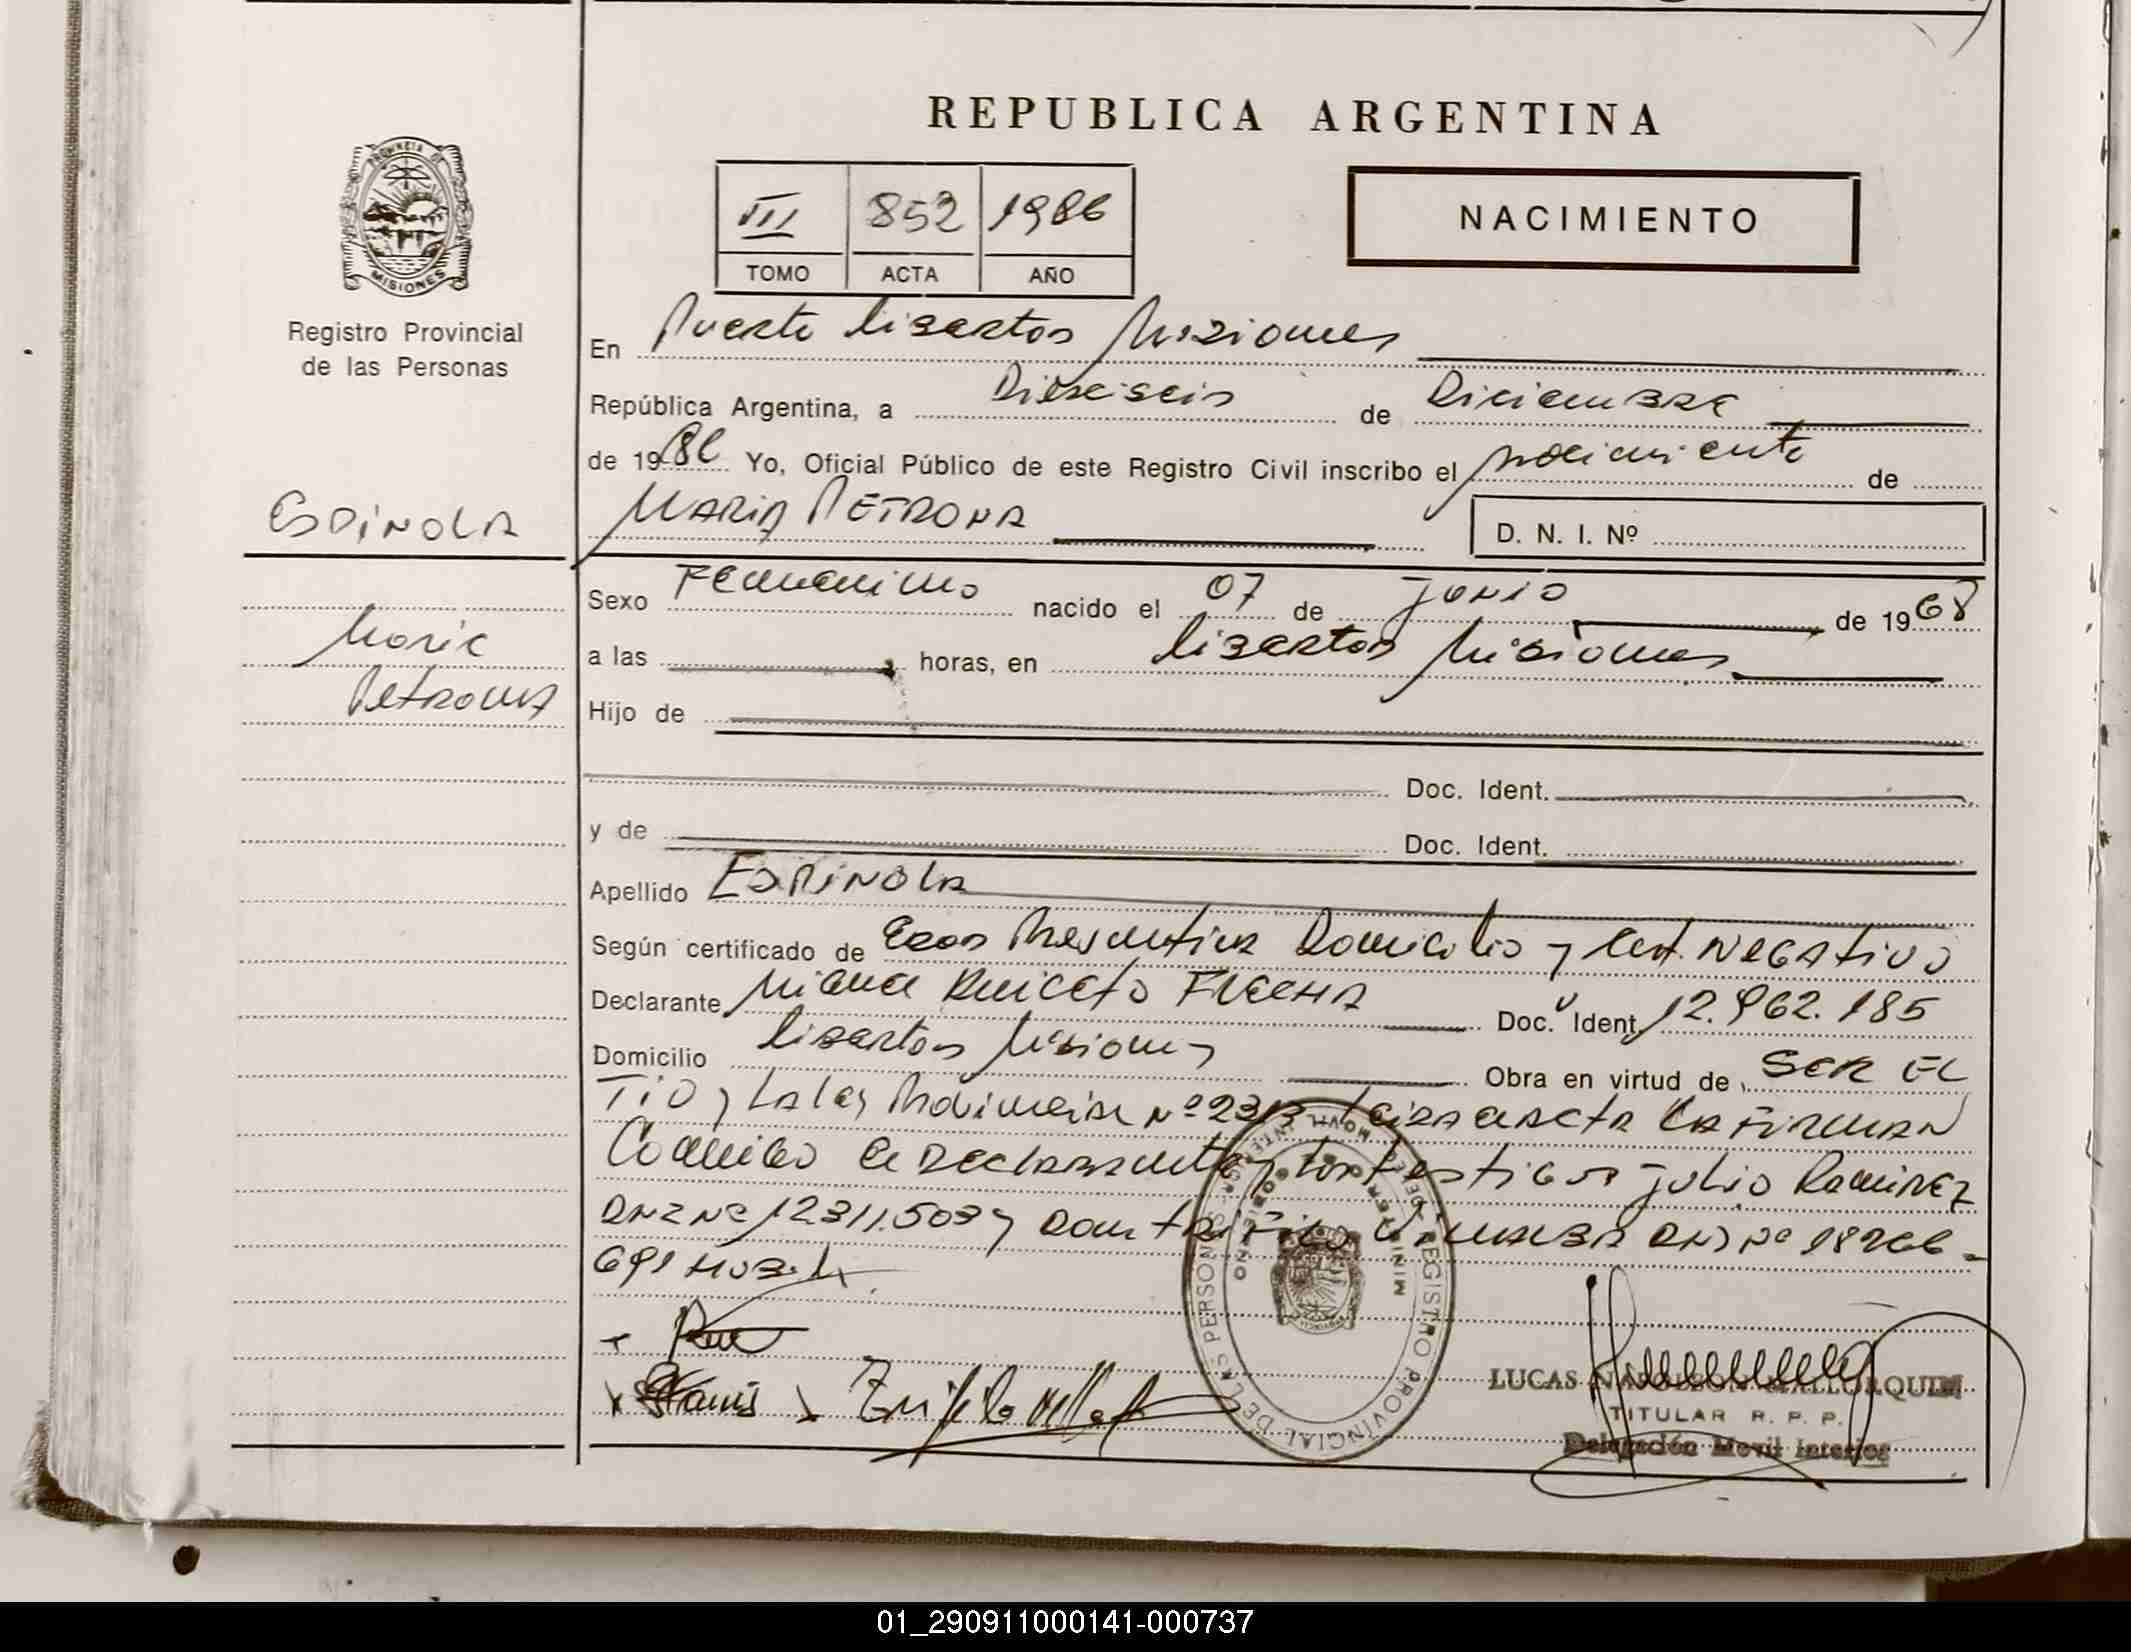 REPUBLICA ARGENTINA
PROVINCIA DE
MISIONES
Registro Provincial
de las Personas
III 852 1986
TOMO ACTA AÑO
NACIMIENTO
En Puerto Libertad Misiones
República Argentina, a Dieseiseis de Diciembre
de 1986 Yo, Oficial Público de este Registro Civil inscribo el nacimiento de
ESPINOLA
MARIA PETRONA
D. N. I. Nº
Sexo Femenino nacido el 07 de Junio de 1968
Maria
Petrona
a las horas, en Libertad Misiones
Hijo de
Doc. Ident.
y de Doc. Ident.
Apellido ESPINOLA
Según certificado de Edad Domicilio y Cert. NEGATIVO
Declarante Aniceto FLECHA Doc. Ident. 12.962.185
Domicilio Libertad Misiones Obra en virtud de SER EL
TIO y La Ley Nº LA FIRMAN
Conmigo el Declarante y los testigos Julio Ramirez
DNI Nº 12311.503 y DNI Nº 18266-
691
LUCAS NAPOLEON MALLORQUIN
TITULAR R. P. P.
Delegación Movil Interior
REGISTRO PROVINCIAL DE LAS PERSONAS
01_290911000141-000737